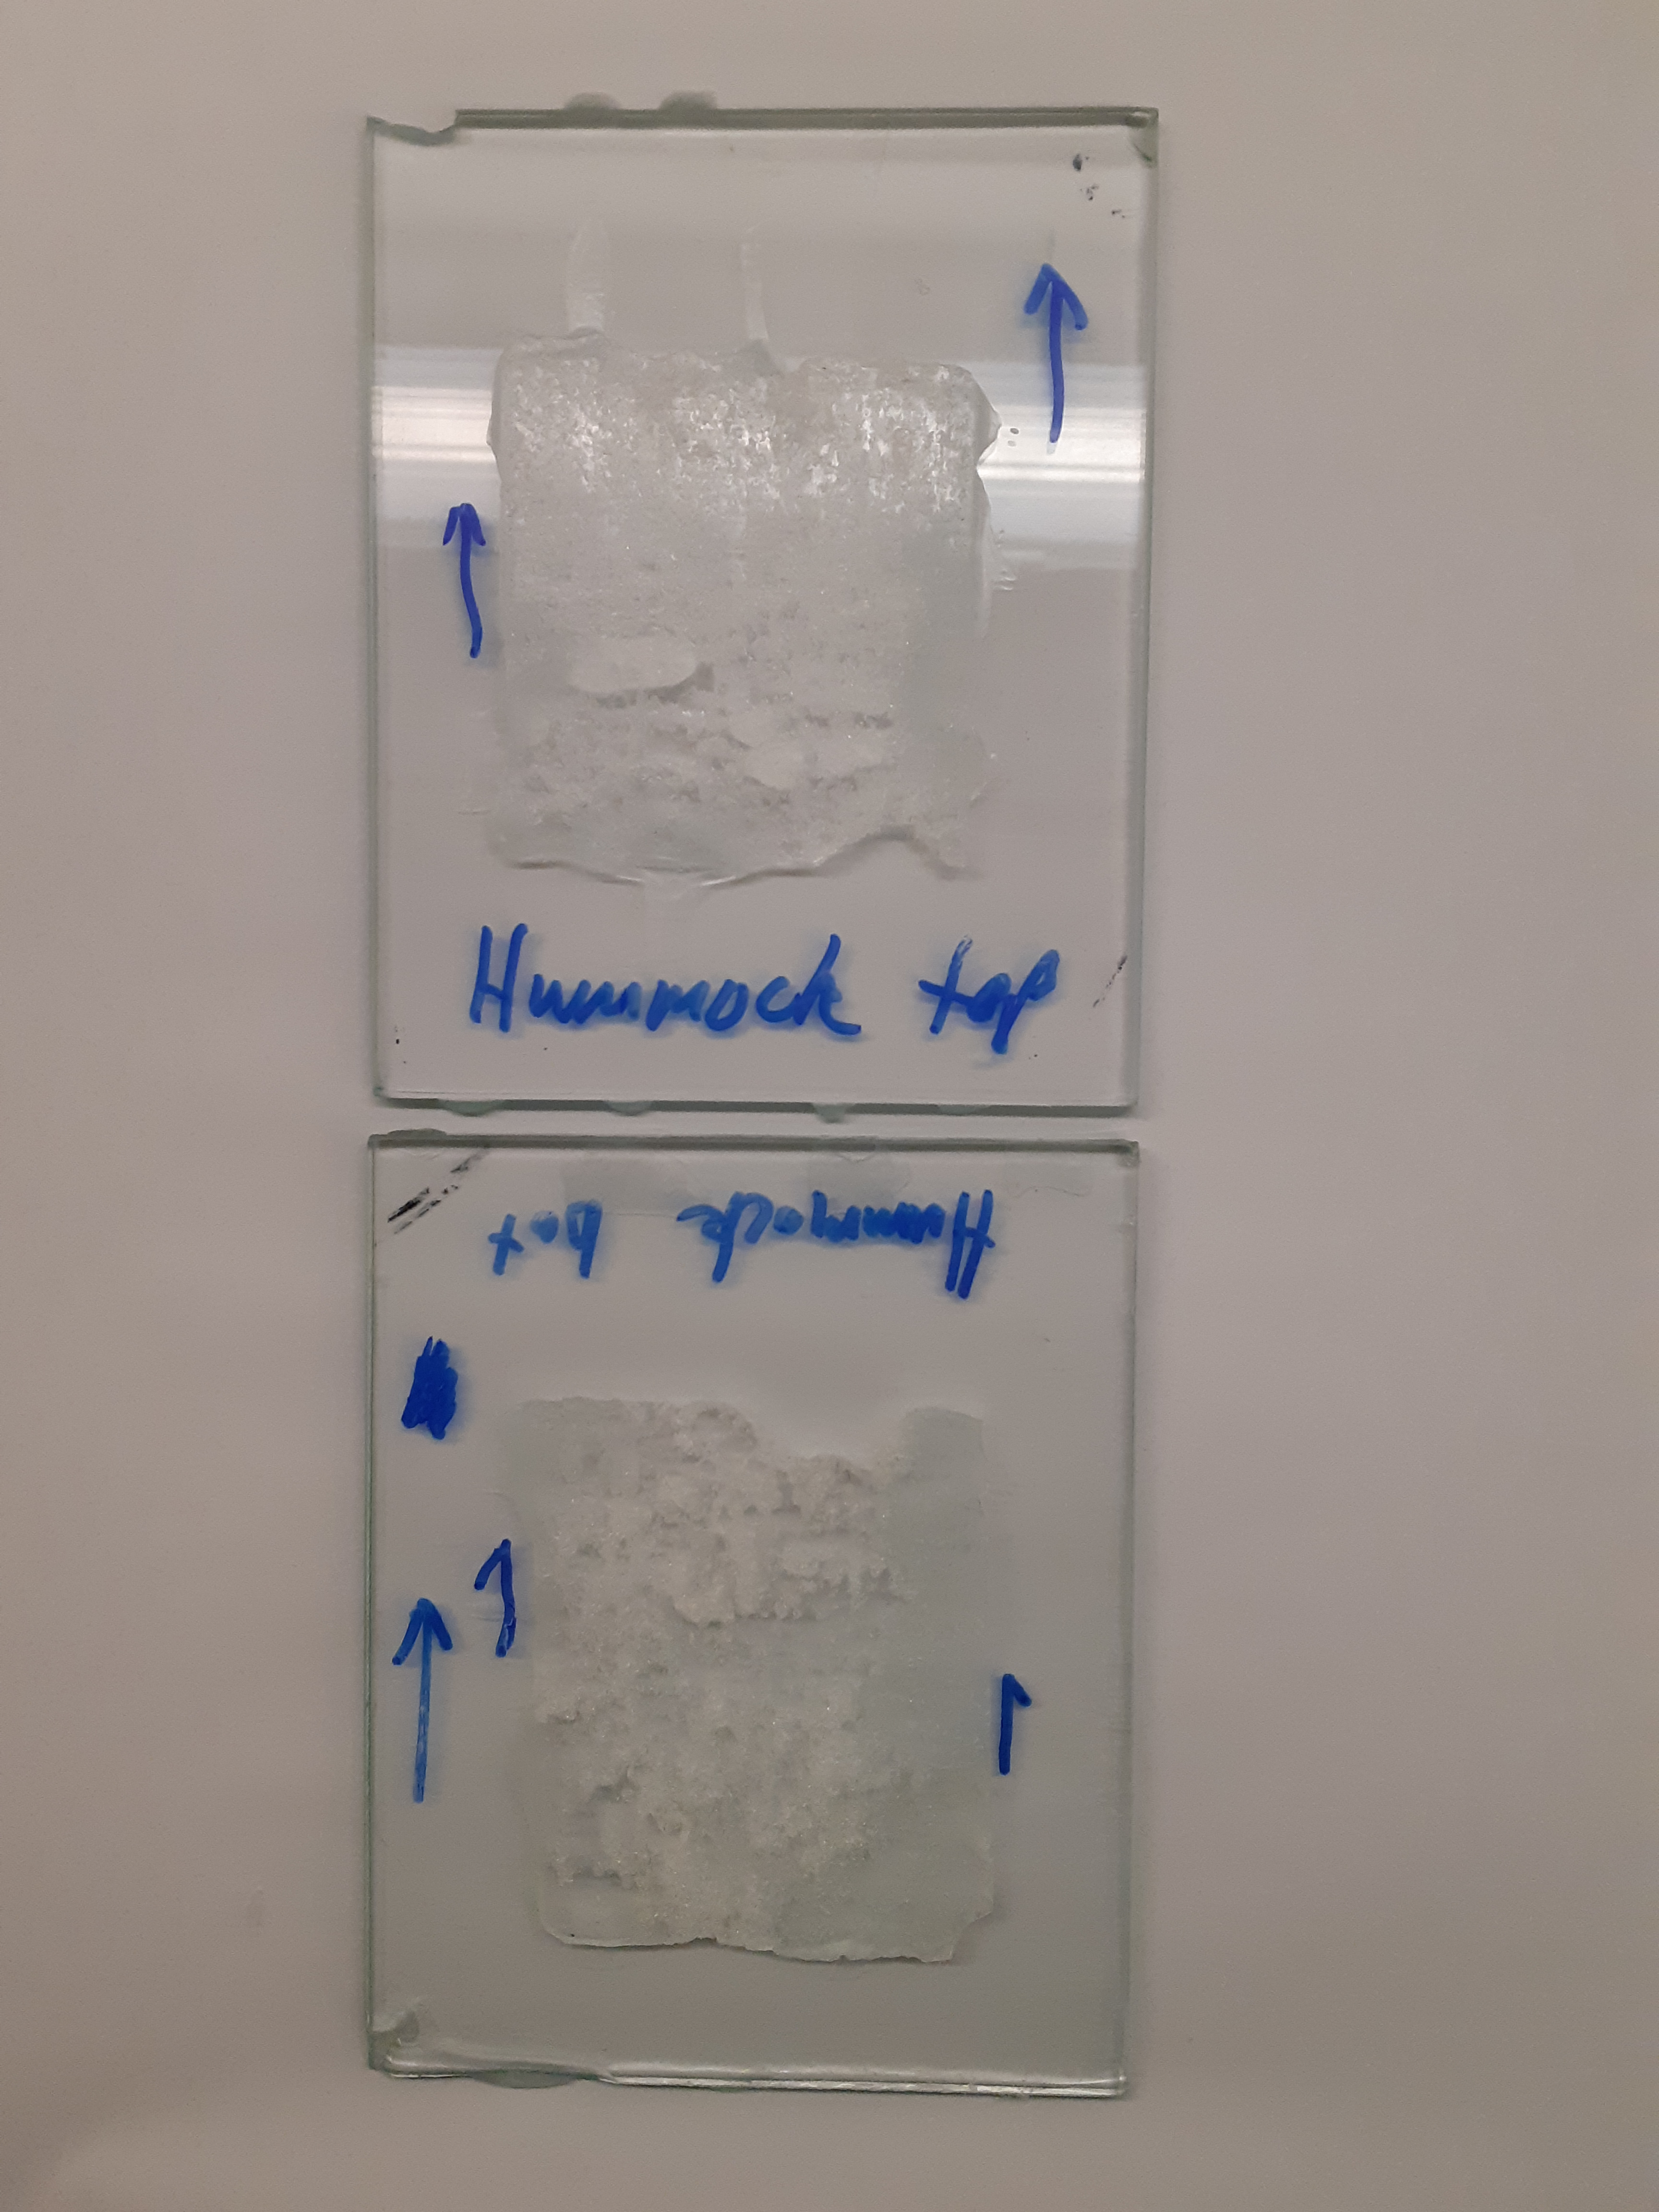 Hummock top
Hummock bot